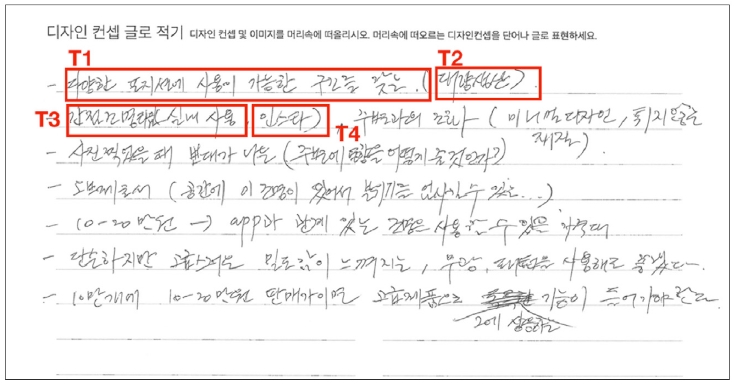 디자인 컨셉 글로 적기 디자인 컨셉 및 이미지를 머리속에 떠올리시오. 머리속에 떠오르는 디자인컨셉을 단어나 글로 표현하세요.
T1 T2
- 다양한 사용이 가능한 구조를 갖는. (대량생산)
T3 실내 사용. 인스타) T4 주변과의 조화 (미니멀디자인, 튀지않을
재질)
- 사진 찍었을 때 분대가 나올 (주변에 어떻게 줄것인가?)
- 오브제로서 (공간에 이 조명이 있어서 분위기를 있는...)
- 10-20만원 → app과 관계 있는 조명은 사용할 수 있은 가격대
- 단순하지만 고급스러운 밀도감이 느껴지는, 무광, 사용해도 좋겠다.
- 10만개에 10-20만원 판매가이면 고급제품으로 기능이 들어가야한다.
그에 상응하는